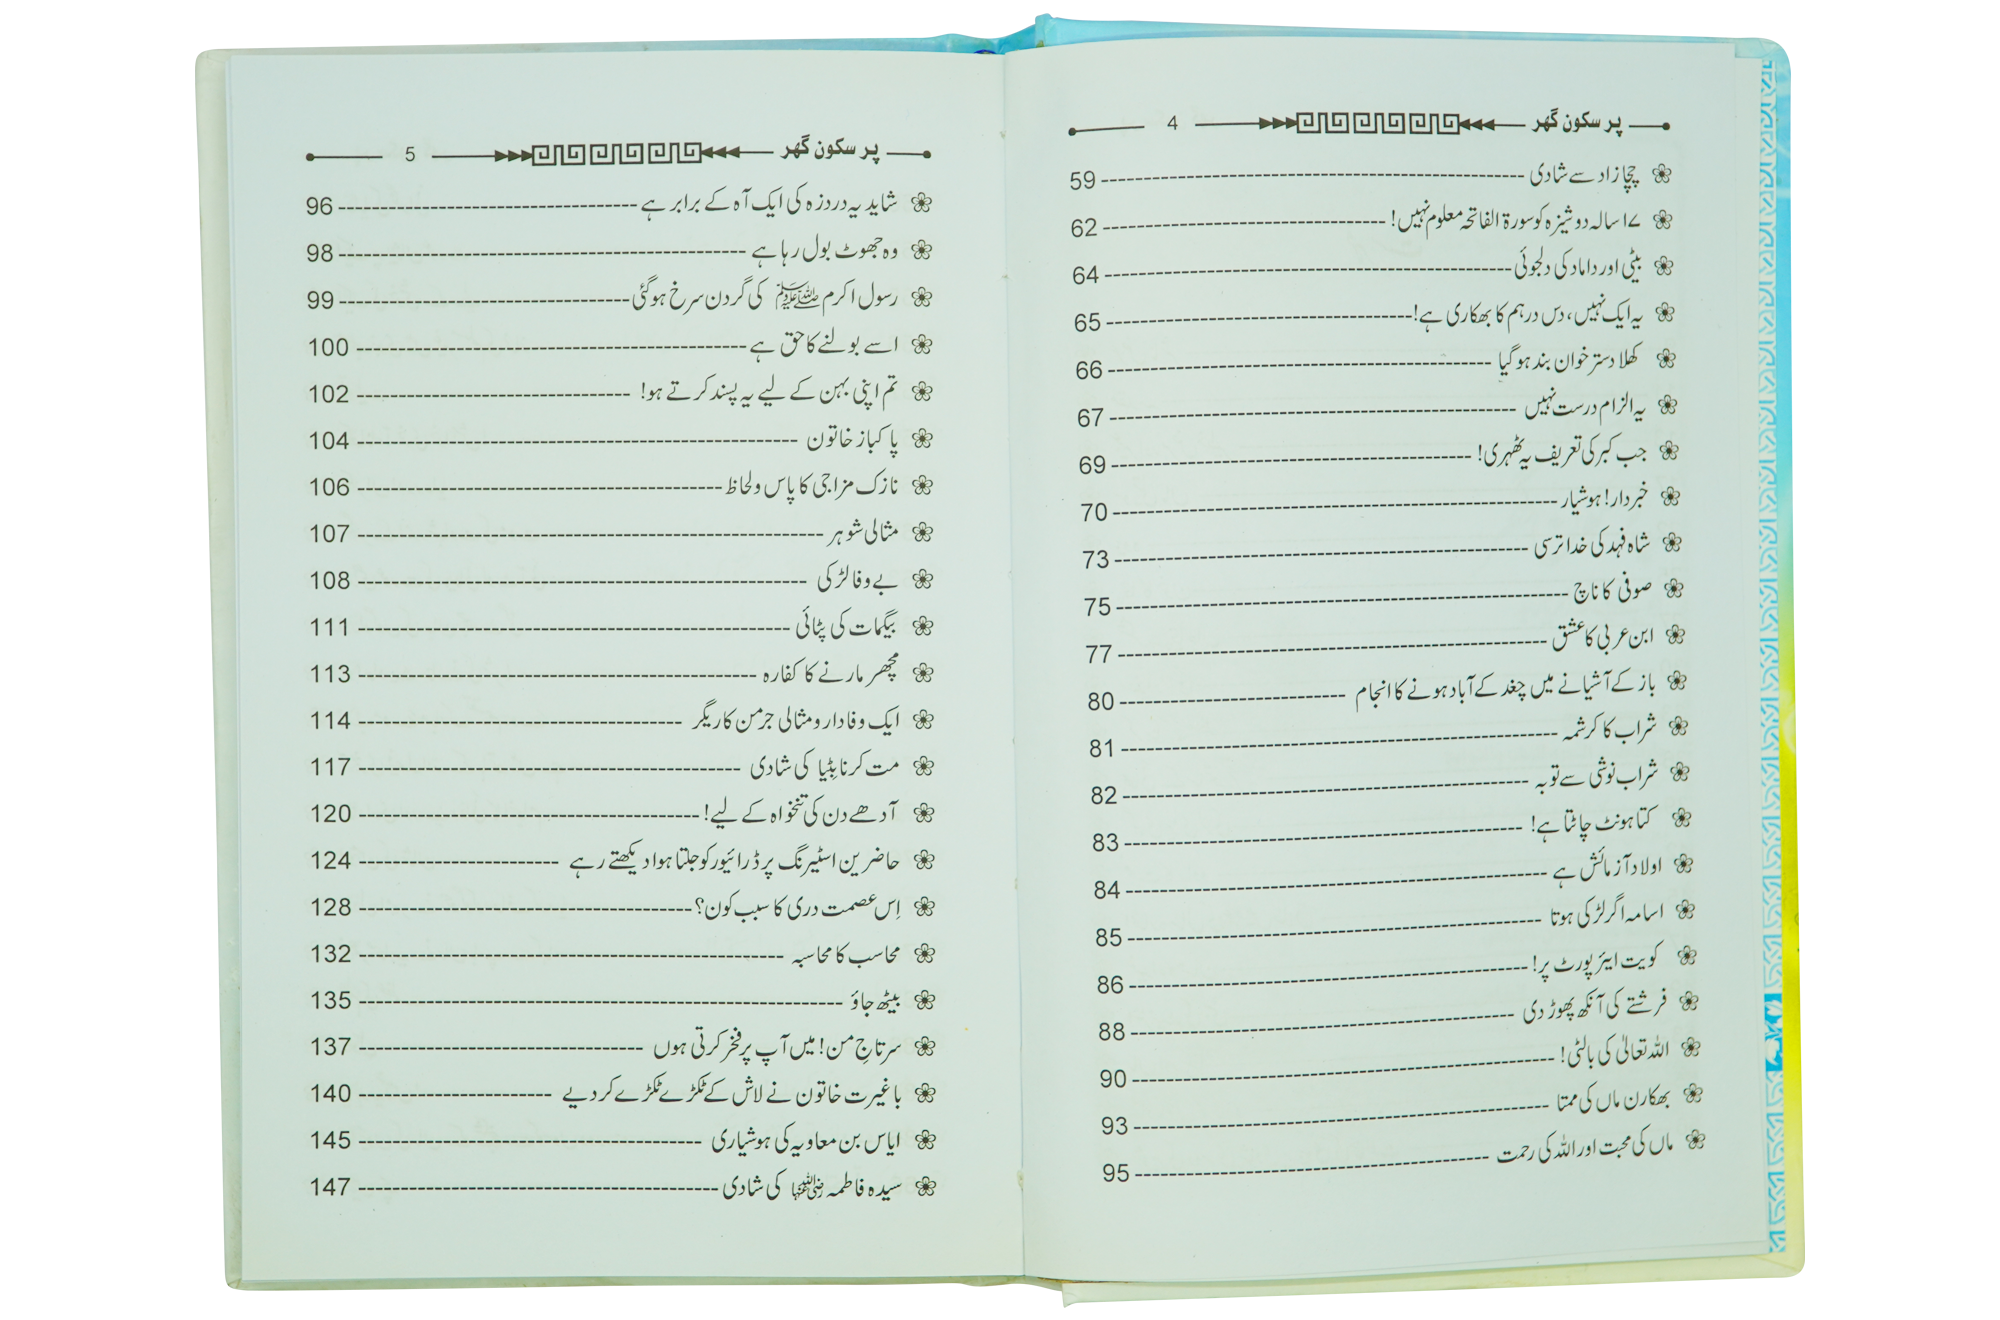 پر سکون گھر 4
چچازاد سے شادی 59
۱۷ سالہ دوشیزہ کو سورۃ الفاتحہ معلوم نہیں! 62
بیٹی اور داماد کی دلجوئی 64
یہ ایک نہیں، دس درہم کا بھکاری ہے! 65
کھلا دستر خوان بند ہو گیا 66
یہ الزام درست نہیں 67
جب کبر کی تعریف یہ ٹھہری! 69
خبردار! ہوشیار 70
شاہ فہد کی خدا ترسی 73
صوفی کا ناچ 75
ابن عربی کا عشق 77
باز کے آشیانے میں چغد کے آباد ہونے کا انجام 80
شراب کا کرشمہ 81
شراب نوشی سے توبہ 82
کتا ہونٹ چاٹتا ہے! 83
اولاد آزمائش ہے 84
اسامہ اگر لڑکی ہوتا 85
کویت ایئر پورٹ پر! 86
فرشتے کی آنکھ پھوڑ دی 88
اللہ تعالیٰ کی بالٹی! 90
بھکارن ماں کی ممتا 93
ماں کی محبت اور اللہ کی رحمت 95
پر سکون گھر 5
شاید یہ دردزہ کی ایک آہ کے برابر ہے 96
وہ جھوٹ بول رہا ہے 98
رسول اکرم ﷺ کی گردن سرخ ہوگئی 99
اسے بولنے کا حق ہے 100
تم اپنی بہن کے لیے یہ پسند کرتے ہو! 102
پاکباز خاتون 104
نازک مزاجی کا پاس ولحاظ 106
مثالی شوہر 107
بے وفا لڑکی 108
بیگمات کی پٹائی 111
مچھر مارنے کا کفارہ 113
ایک وفادار ومثالی جرمن کاریگر 114
مت کرنا بِٹیا کی شادی 117
آدھے دن کی تنخواہ کے لیے! 120
حاضرین اسٹیرنگ پر ڈرائیور کو جلتا ہوا دیکھتے رہے 124
اِس عصمت دری کا سبب کون؟ 128
محاسب کا محاسبہ 132
بیٹھ جاؤ 135
سرتاجِ من! میں آپ پر فخر کرتی ہوں 137
باغیرت خاتون نے لاش کے ٹکڑے ٹکڑے کر دیے 140
ایاس بن معاویہ کی ہوشیاری 145
سیدہ فاطمہ رضی اللہ عنہا کی شادی 147